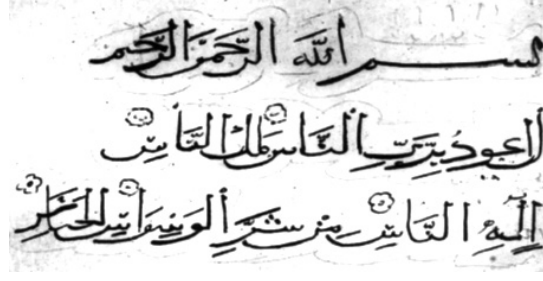 بسم الله الرحمن الرحيم
أعوذ برب الناس ملك الناس
إله الناس من شر الوسواس الخناس